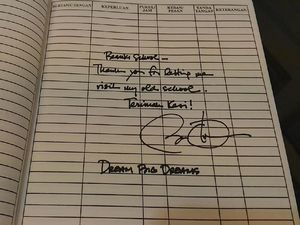 KEPERLUAN PUKUL/ KESAN/ TANDA KETERANGAN
JAM PESAN TANGAN
Besuki School –
Thank you for letting me
visit my old school.
Terimah Kasi!
DREAM BIG DREAMS